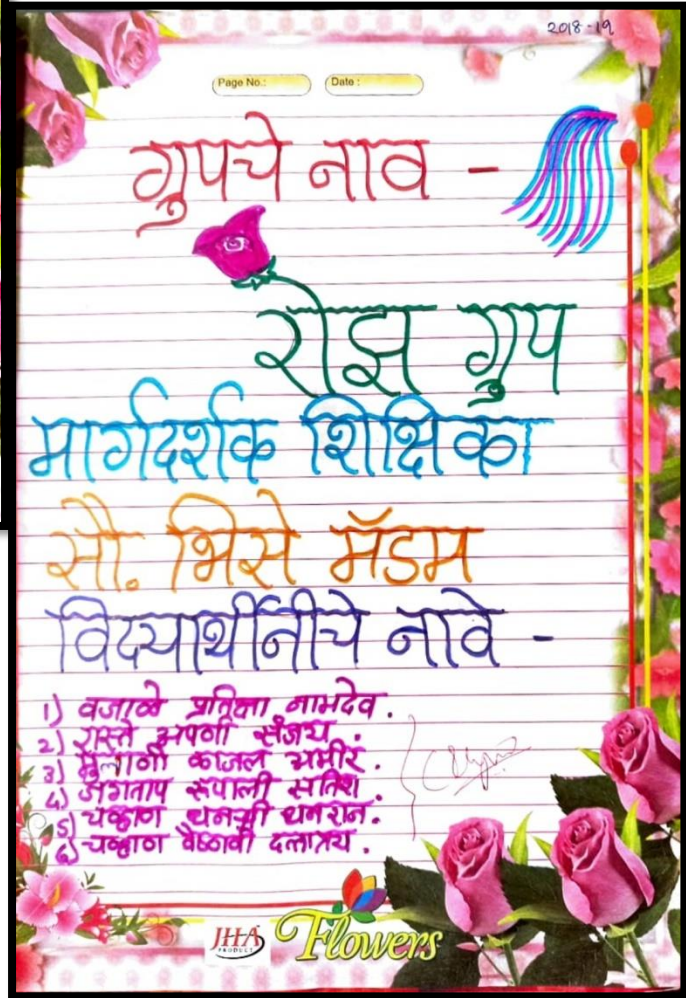 2018-19
Page No.:
Date :
ग्रुपचे नाव -
रोझ ग्रुप
मार्गदर्शक शिक्षिका
सौ. भिसे मॅडम
विद्यार्थीनीचे नावे -
1) वजाळे प्रतिक्षा नामदेव.
2) रास्ते अपर्णा संजय.
3) मुलाणी काजल अमीर.
4) जगताप रूपाली सतिश.
5) चव्हाण धनश्री धनराज.
6) चव्हाण वैष्णवी दत्तात्रय.
JHA
PRODUCT
Flowers